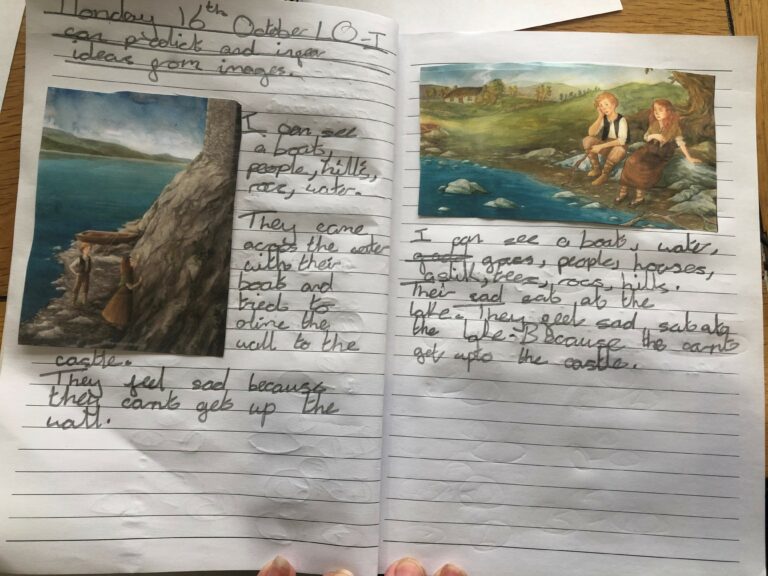 Monday 16th October LO-I
can predict and infer
ideas from images.
I can see
a boat,
people, hills,
rocs, water.
They came
across the water
with their
boat and
tried to
clime the
wall to the
castle.
They feel sad because
they cant get up the
wall.
I can see a boat, water,
grass, people, houses,
a stik, trees, rocs, hills.
Their sad sat at the
lake. They feel sad sat at
the lake. Because the cant
get upto the castle.